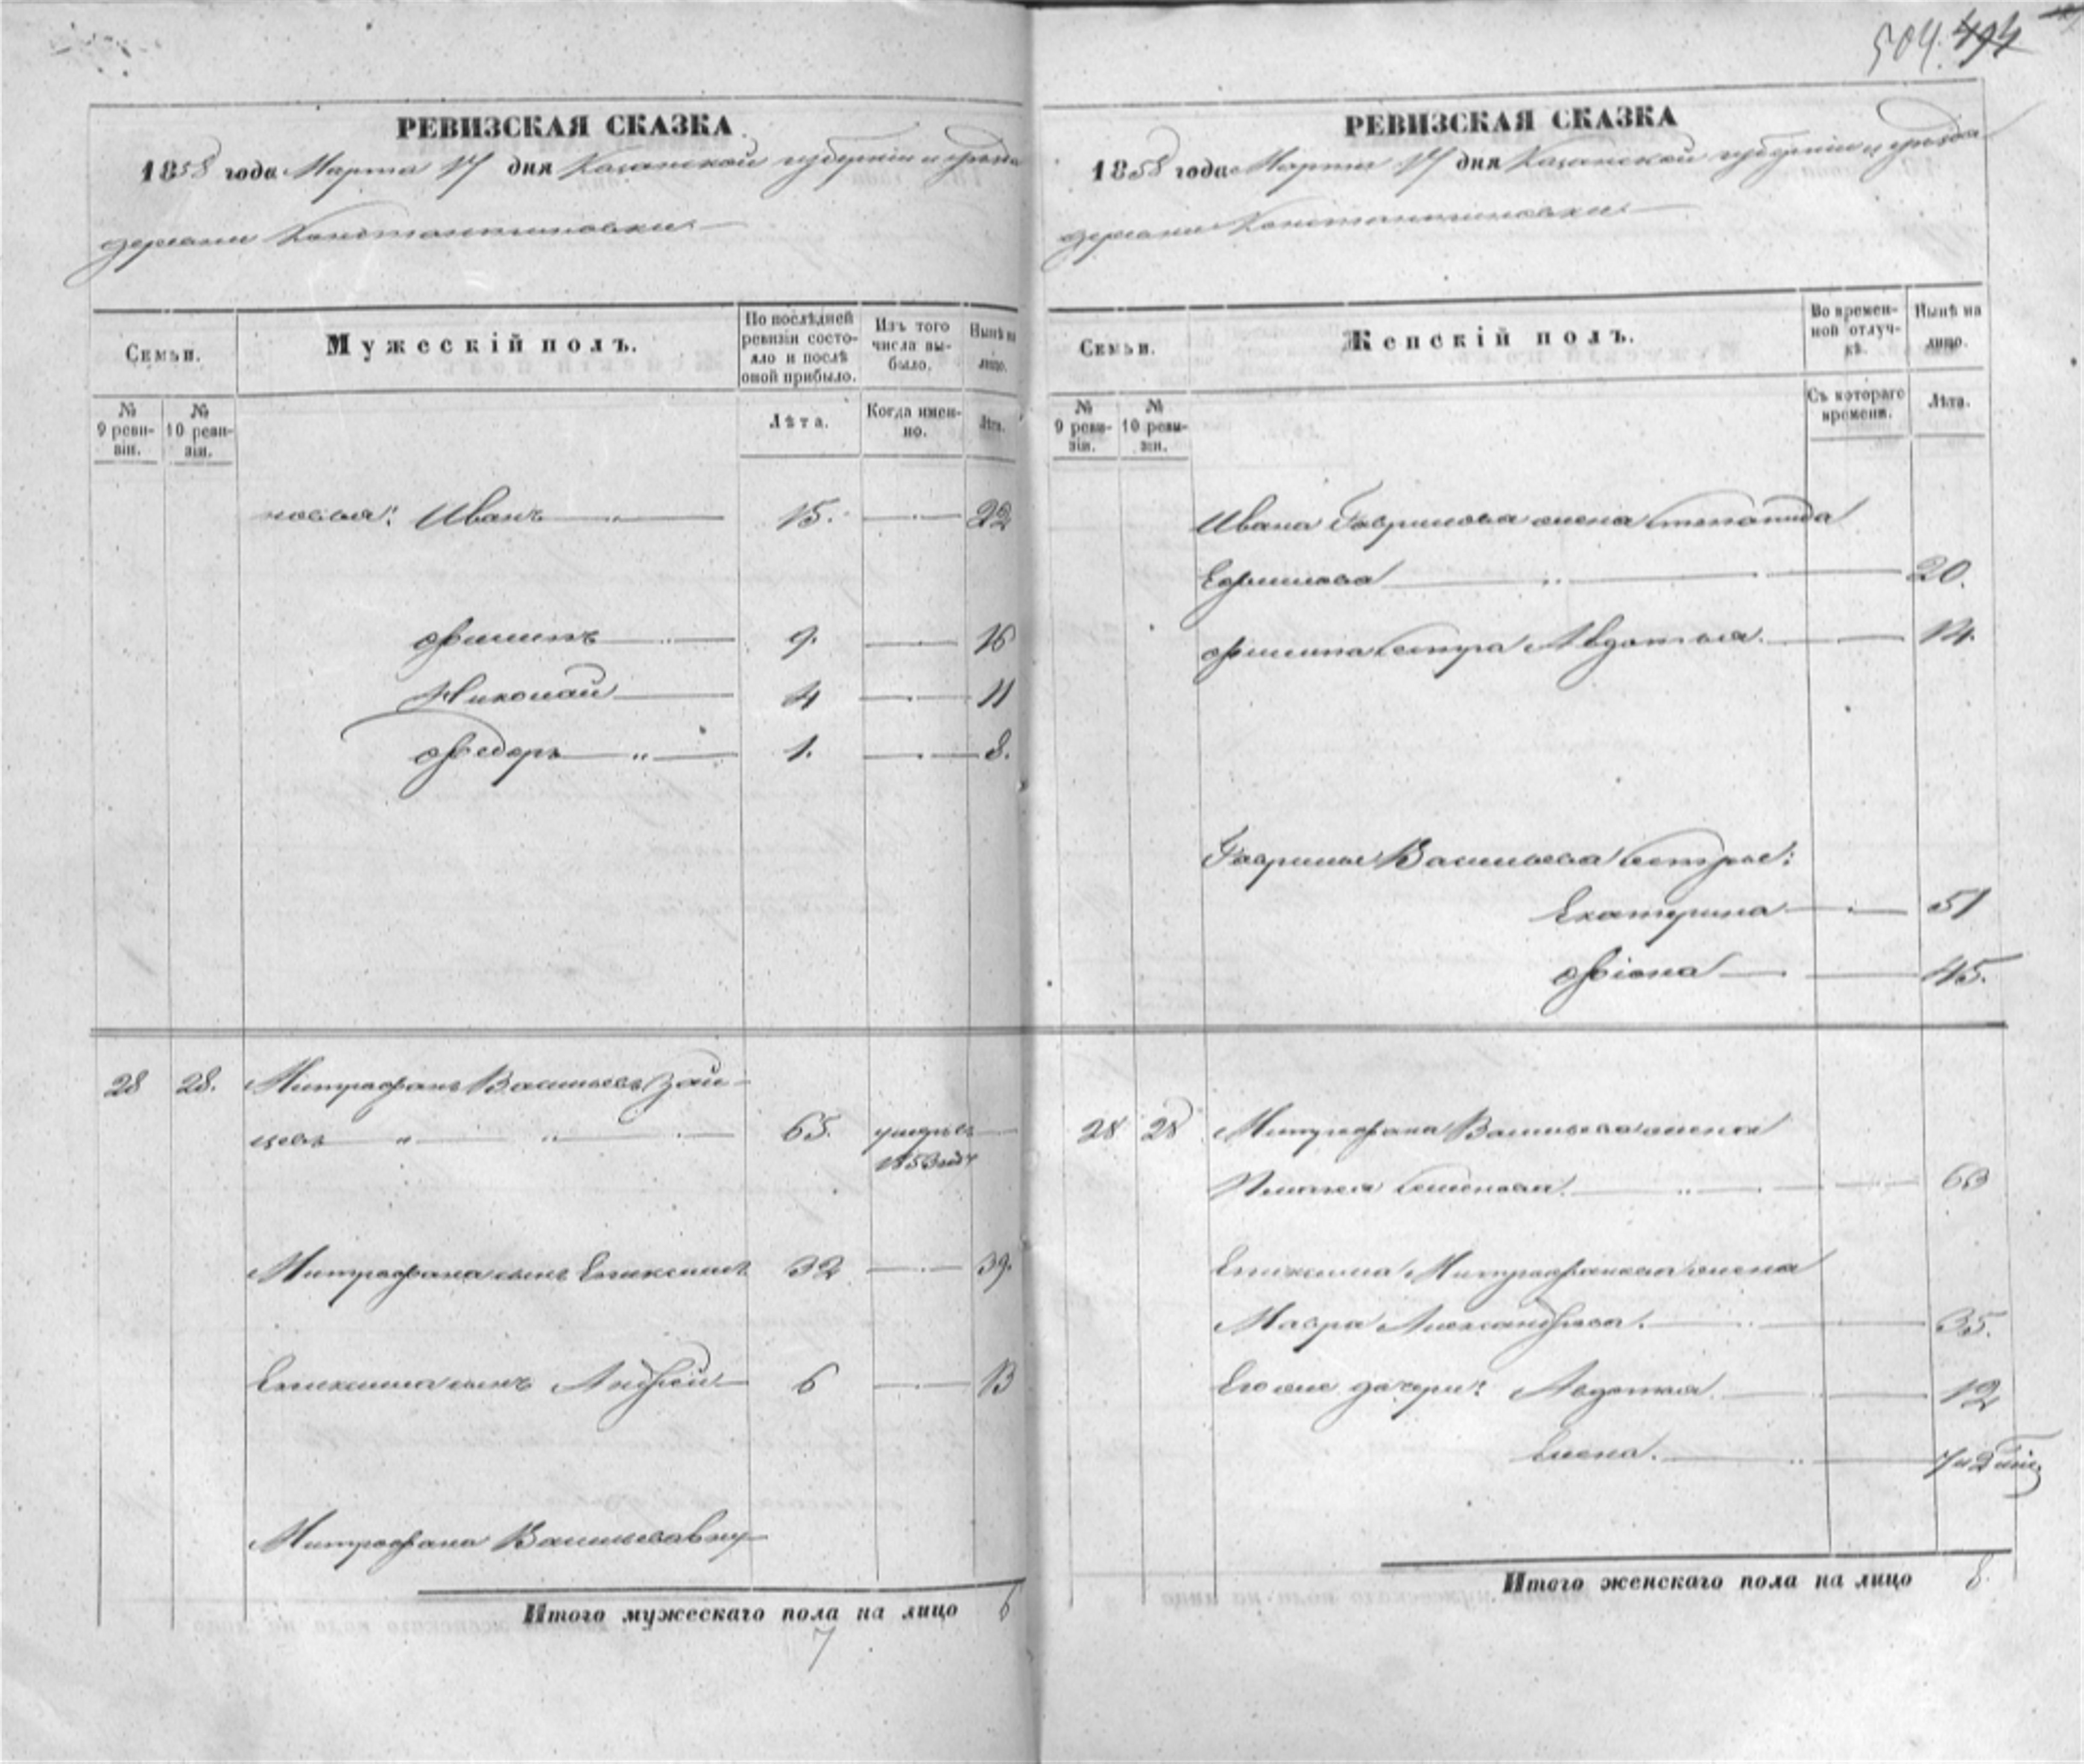 504. 494
РЕВИЗСКАЯ СКАЗКА
1858 года Марта 17 дня Казанской губерніи и уѣзда
деревни Константиновки
Семьи.
Мужескій полъ.
По послѣдней ревизіи состояло и послѣ оной прибыло.
Изъ того числа выбыло.
Нынѣ на лицо.
№ 9 ревизіи.
№ 10 ревизіи.
Лѣта.
Когда именно.
Лѣта.
Иванъ 15. 22
Филипъ 9. 16
Николай 4 11
Федоръ 1. 8.
28 28. Митрофанъ Васильевъ Зай-
цевъ 65. умеръ въ
1853 году
Митрофана сынъ 32 39.
сынъ Андрей 6 13
Митрофана Васильева внук
Итого мужескаго пола на лицо 6
7
РЕВИЗСКАЯ СКАЗКА
1858 года Марта 17 дня Казанской губерніи и уѣзда
деревни Константиновки
Семьи.
Женскій полъ.
Во временной отлучкѣ.
Нынѣ на лицо.
№ 9 ревизіи.
№ 10 ревизіи.
Съ котораго времени.
Лѣта.
Ивана Гаврилова жена Степанида
Ефимова 20.
Филипа сестра Авдотья. 14.
Гаврилы Васильева сестры:
Екатерина 51
Фіона 45.
28 28 Митрофана Васильева жена
Семенова. 63
Митрофанова жена
Мавра Александрова. 35.
Его же дочери: Авдотья. 12
Елена. 7 и 2
Итого женскаго пола на лицо 8.